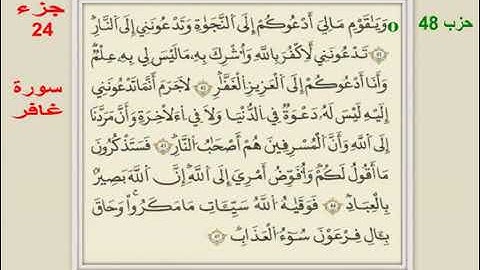 حزب 48
جزء
24
سورة
غافر
وَيَٰقَوْمِ مَا لِيَ أَدْعُوكُمْ إِلَى ٱلنَّجَوٰةِ وَتَدْعُونَنِي إِلَى ٱلنَّارِ
تَدْعُونَنِي لِأَكْفُرَ بِٱللَّهِ وَأُشْرِكَ بِهِۦ مَا لَيْسَ لِي بِهِۦ عِلْمٌ
وَأَنَا أَدْعُوكُمْ إِلَى ٱلْعَزِيزِ ٱلْغَفَّٰرِ لَا جَرَمَ أَنَّمَا تَدْعُونَنِي
إِلَيْهِ لَيْسَ لَهُۥ دَعْوَةٌ فِي ٱلدُّنْيَا وَلَا فِي ٱلْأَخِرَةِ وَأَنَّ مَرَدَّنَا
إِلَى ٱللَّهِ وَأَنَّ ٱلْمُسْرِفِينَ هُمْ أَصْحَٰبُ ٱلنَّارِ فَسَتَذْكُرُونَ
مَا أَقُولُ لَكُمْ وَأُفَوِّضُ أَمْرِيَ إِلَى ٱللَّهِ إِنَّ ٱللَّهَ بَصِيرٌ
بِٱلْعِبَادِ فَوَقَىٰهُ ٱللَّهُ سَيِّـَٔاتِ مَا مَكَرُوا۟ وَحَاقَ
بِـَٔالِ فِرْعَوْنَ سُوٓءُ ٱلْعَذَابِ